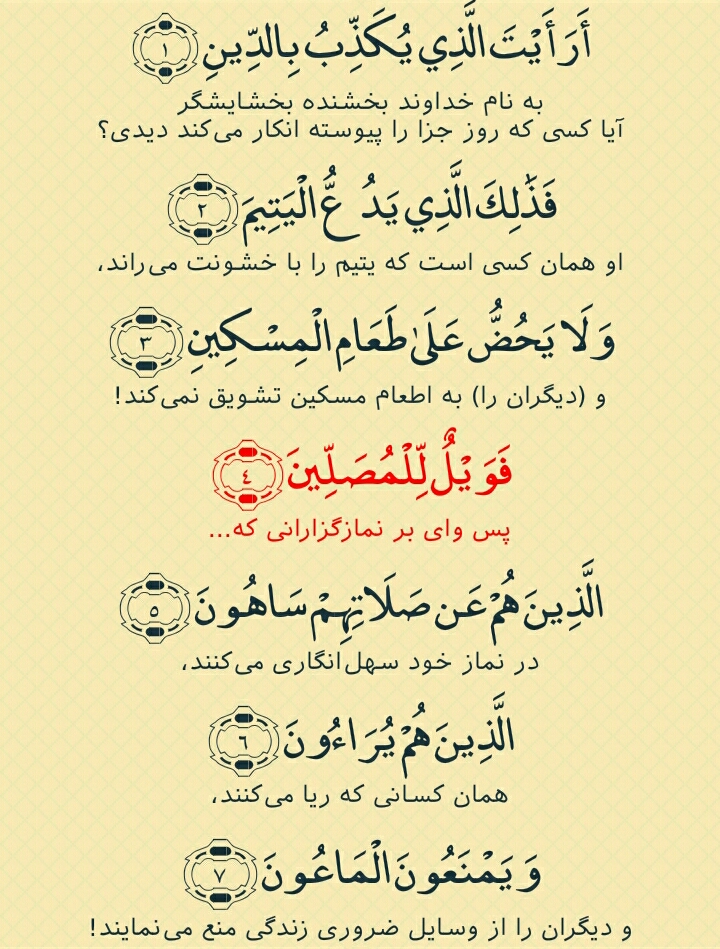 أَرَأَيْتَ الَّذِي يُكَذِّبُ بِالدِّينِ ١
به نام خداوند بخشنده بخشایشگر
آیا کسی که روز جزا را پیوسته انکار می‌کند دیدی؟
فَذَٰلِكَ الَّذِي يَدُعُّ الْيَتِيمَ ٢
او همان کسی است که یتیم را با خشونت می‌راند،
وَلَا يَحُضُّ عَلَىٰ طَعَامِ الْمِسْكِينِ ٣
و (دیگران را) به اطعام مسکین تشویق نمی‌کند!
فَوَيْلٌ لِّلْمُصَلِّينَ ٤
پس وای بر نمازگزارانی که...
الَّذِينَ هُمْ عَن صَلَاتِهِمْ سَاهُونَ ٥
در نماز خود سهل‌انگاری می‌کنند،
الَّذِينَ هُمْ يُرَاءُونَ ٦
همان کسانی که ریا می‌کنند،
وَيَمْنَعُونَ الْمَاعُونَ ٧
و دیگران را از وسایل ضروری زندگی منع می‌نمایند!